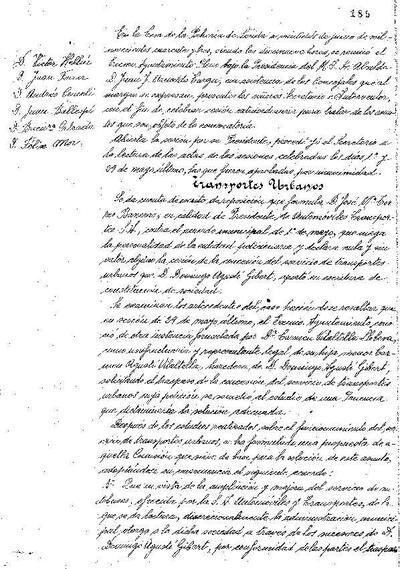 185
En la Casa de la Paheria de Lérida a veintiséis de junio de mil
novecientos cuarenta y dos, siendo las diecinueve horas, se reunió el
Excmo. Ayuntamiento Pleno bajo la Presidencia del M. I. Sr. Alcalde
D. Juan J. Arnaldo Targa, con asistencia de los Concejales que al
margen se expresan, presentes los señores Secretario e Interventor,
con el fin de celebrar sesión extraordinaria para tratar de los asun-
tos que son objeto de la convocatoria.
D. Víctor
D. Juan
D. Antonio
D. Juan
D.
D. Félix Mor.
Abierta la sesión por su Presidente, procedió el Secretario a
la lectura de las actas de las sesiones celebradas los días 1º y
29 de mayo último, las que fueron aprobadas por unanimidad.
Transportes Urbanos
Se da cuenta de escrito de reposición que formula D. José Mª
Barrera, en calidad de Presidente de Automóviles Transpor-
tes S.A., contra el acuerdo municipal de 1º de mayo, que niega
la personalidad de la entidad y declara nula y sin
valor alguno la cesión de la concesión del servicio de transportes
urbanos que D. Domingo Agusté Gibert, aportó en escritura de
constitución de sociedad.
Se examinan los antecedentes del caso
en sesión de 29 de mayo último, el Excmo. Ayuntamiento, cono-
ció de otra instancia formulada por Dª Carmen Vilaltella
como usufructuaria y representante legal de su hija menor Car-
men Agusti Vilaltella, heredera de D. Domingo Agusté Gibert,
solicitando el traspaso de la concesión del servicio de transportes
urbanos cuya petición se remitió al estudio de una Ponencia
que dictaminaría la solución adecuada.
Después de los estudios realizados sobre el funcionamiento del ser-
vicio de transportes urbanos, se ha formulado una propuesta de a-
quella Comisión que sirve de base para la solución de este asunto,
adoptándose en consecuencia el siguiente acuerdo:
1º Que en vista de la ampliación y mejora del servicio de au-
tobuses, ofrecida por la S.A. Automóviles y Transportes, de la
que se da lectura, discrecionalmente la administración munici-
pal otorga a la dicha sociedad a través de los sucesores de D.
Domingo Agusté Gibert, por conformidad de las partes el traspaso